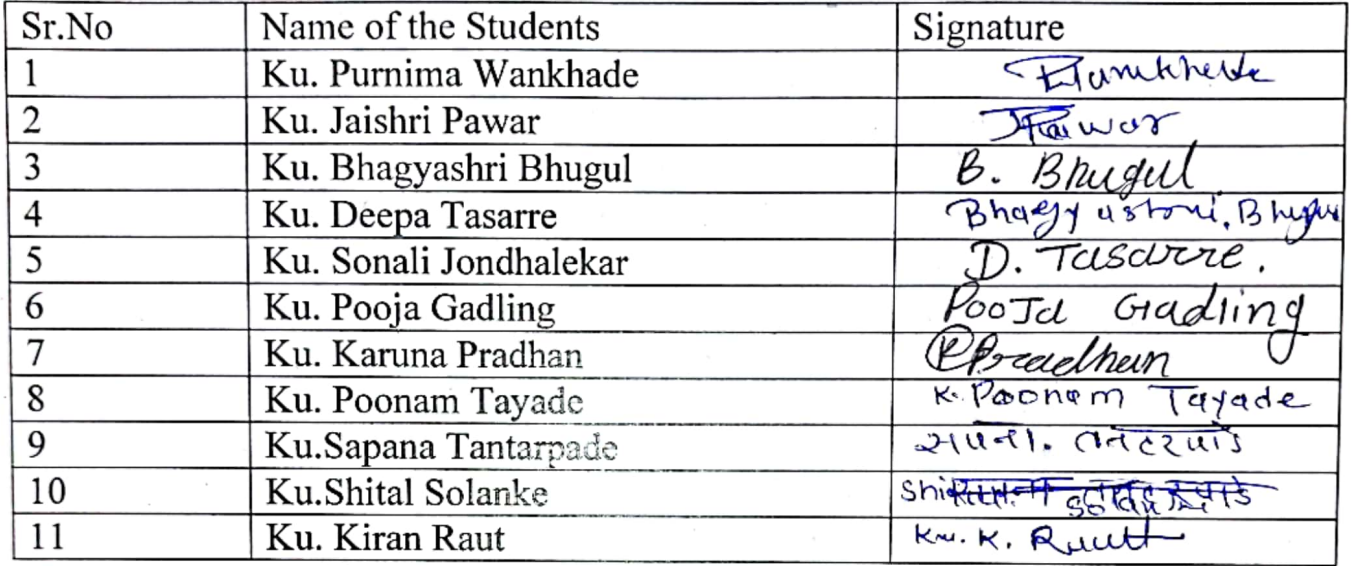 Sr.No Name of the Students Signature
1 Ku. Purnima Wankhade
2 Ku. Jaishri Pawar JPawar
3 Ku. Bhagyashri Bhugul B. Bhugul
4 Ku. Deepa Tasarre
5 Ku. Sonali Jondhalekar D. Tasarre.
6 Ku. Pooja Gadling Pooja Gadling
7 Ku. Karuna Pradhan Pradhan
8 Ku. Poonam Tayade K. Poonam Tayade
9 Ku.Sapana Tantarpade
10 Ku.Shital Solanke
11 Ku. Kiran Raut Ku. K. Raut